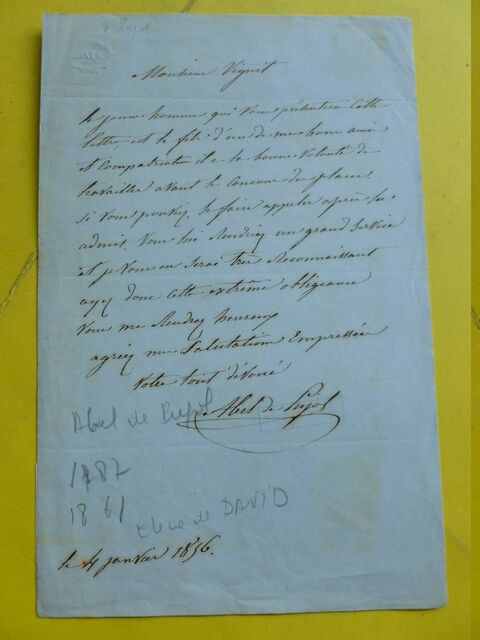 Monsieur Vignit
le jeune homme qui vous présentera cette
lettre est le fils d'un de mes bons amis
et compatriotes il a la bonne volonté de
travailler avant le concours des places
si vous pouviez le faire appeler après les
admis, vous lui rendriez un grand service
et je vous en serai très reconnaissant
ayez donc cette extrême obligeance
vous me rendrez heureux
agréez mes salutations Empressées
votre tout dévoué
Abel de Pujol
Abel de Pujol
1787
1861
Elève de DAVID
le 4 janvier 1856.